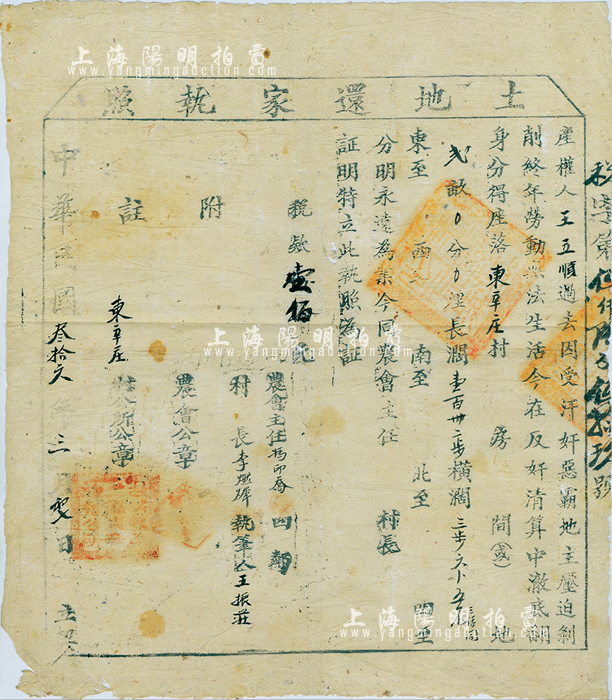 土地還家執照
產權人王五順過去因受汗奸惡霸地主壓迫剝
削終年勞動無法生活今在反奸清算中澈底翻
身分得座落東平庄村 房 間(或)地
弍畝0分0厘長濶壹百卅二步橫濶三步六小五
東至 西至 南至 北至 四至
分明永遠為業今同農會主任 村長
証明特立此執照為証
稅款壹佰元
農會主任 四鄰
村長李 執筆人王振莊
附註
農會公章
村公所公章
東平庄
中華民國叁拾六年三月 日 立契
號
上海陽明拍賣
www.yangmingauction.com
上海陽明拍賣
www.yangmingauction.com
上海陽明拍賣
www.yangmingauction.com